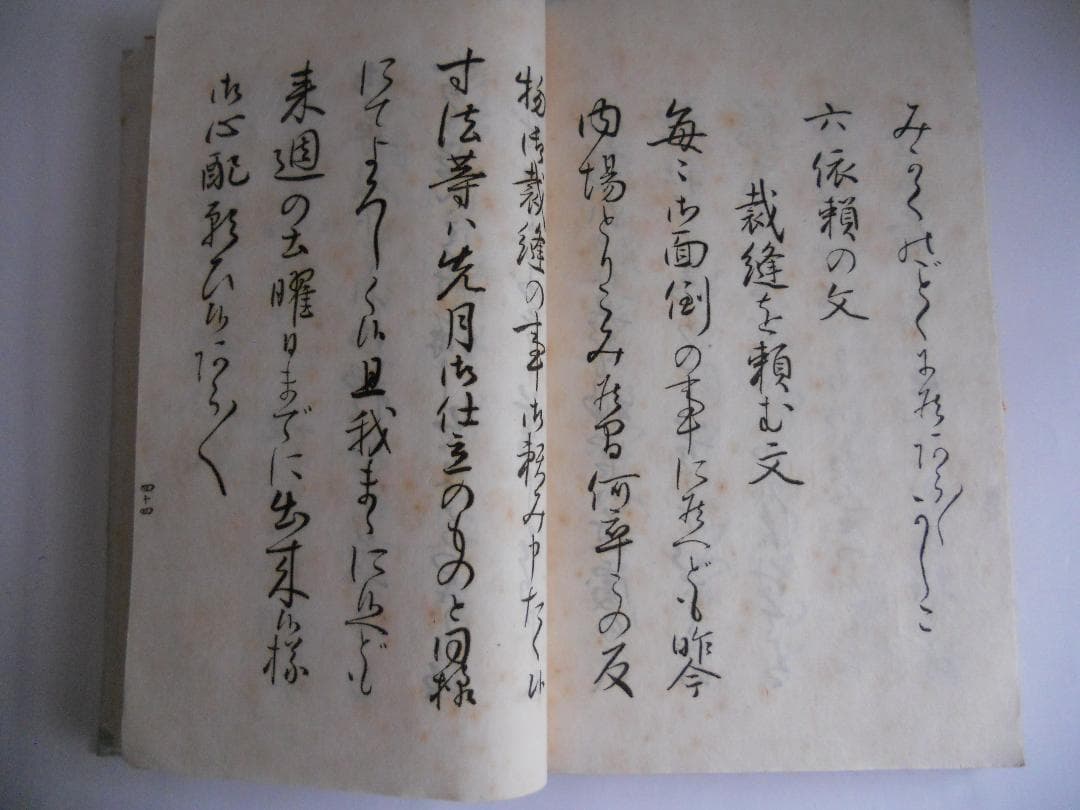 六依頼の文
裁縫を頼む文
毎々御面倒の事に候へども昨今
内場とりこみ居候間何卒この反
物御裁縫の事御頼み申たく候
寸法等ハ先月御仕立のものと同様
にてよろしく候且我まゝに候へども
来週の土曜日までに出来候様
御心配願ひ候
四十四